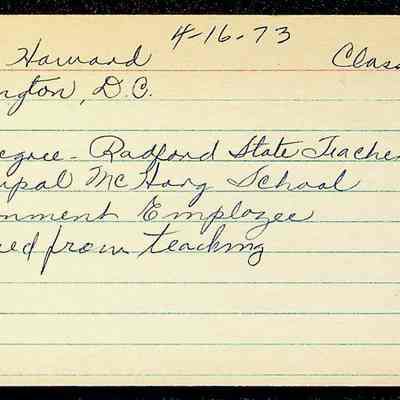 Howard 4-16-73 Class
ngton, D.C.
egree - Radford State Teache
ipal McHarg School
rnment Employee
ed from teaching